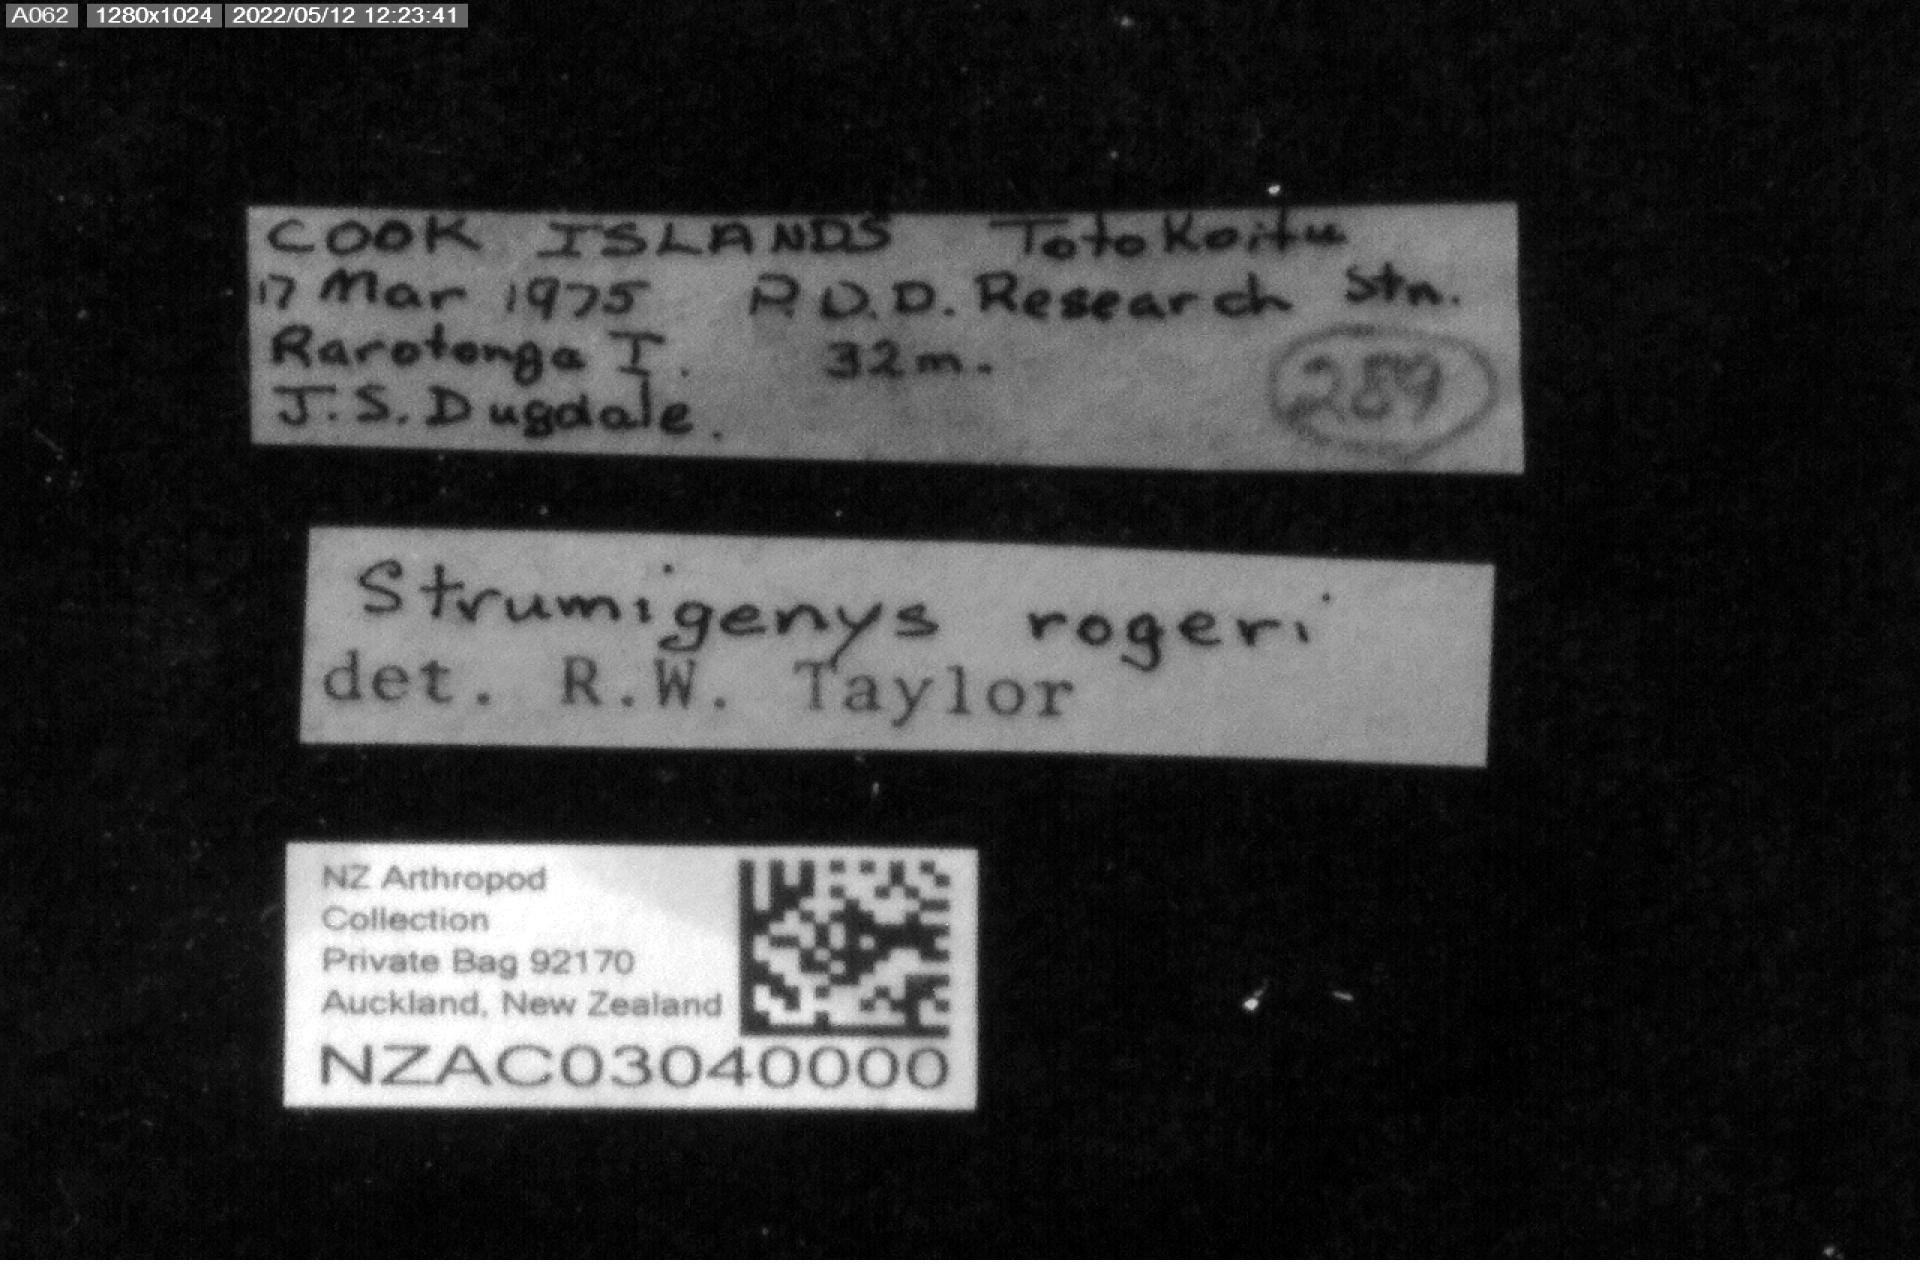 A062 1280x1024 2022/05/12 12:23:41
COOK ISLANDS Totokoitu
17 Mar 1975 P.D.D. Research Stn.
Rarotonga I. 32m.
289
J.S. Dugdale.
Strumigenys rogeri
det. R.W. Taylor
NZ Arthropod
Collection
Private Bag 92170
Auckland, New Zealand
NZAC03040000